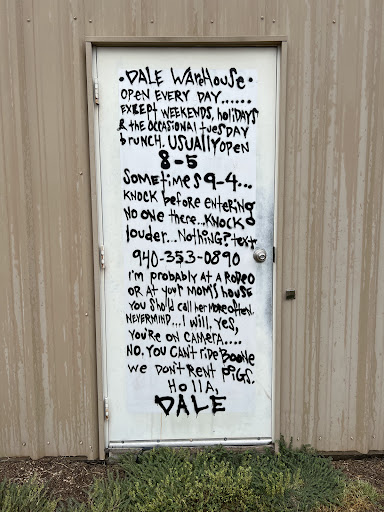 • DALE WAREHOUSE •
OPEN EVERY DAY......
EXCEPT WEEKENDS, HOLIDAYS
& THE OCCASIONAL TUESDAY
BRUNCH. USUALLY OPEN
8-5
SOMETIMES 9-4...
KNOCK BEFORE ENTERING
NO ONE THERE...KNOCK
LOUDER...NOTHING? TEXT
940-353-0890
I'M PROBABLY AT A RODEO
OR AT YOUR MOM'S HOUSE
YOU SHOULD CALL HER MORE OFTEN.
NEVERMIND...I WILL. YES,
YOU'RE ON CAMERA....
NO. YOU CAN'T RIDE BOONE
WE DON'T RENT PIGS.
HOLLA,
DALE